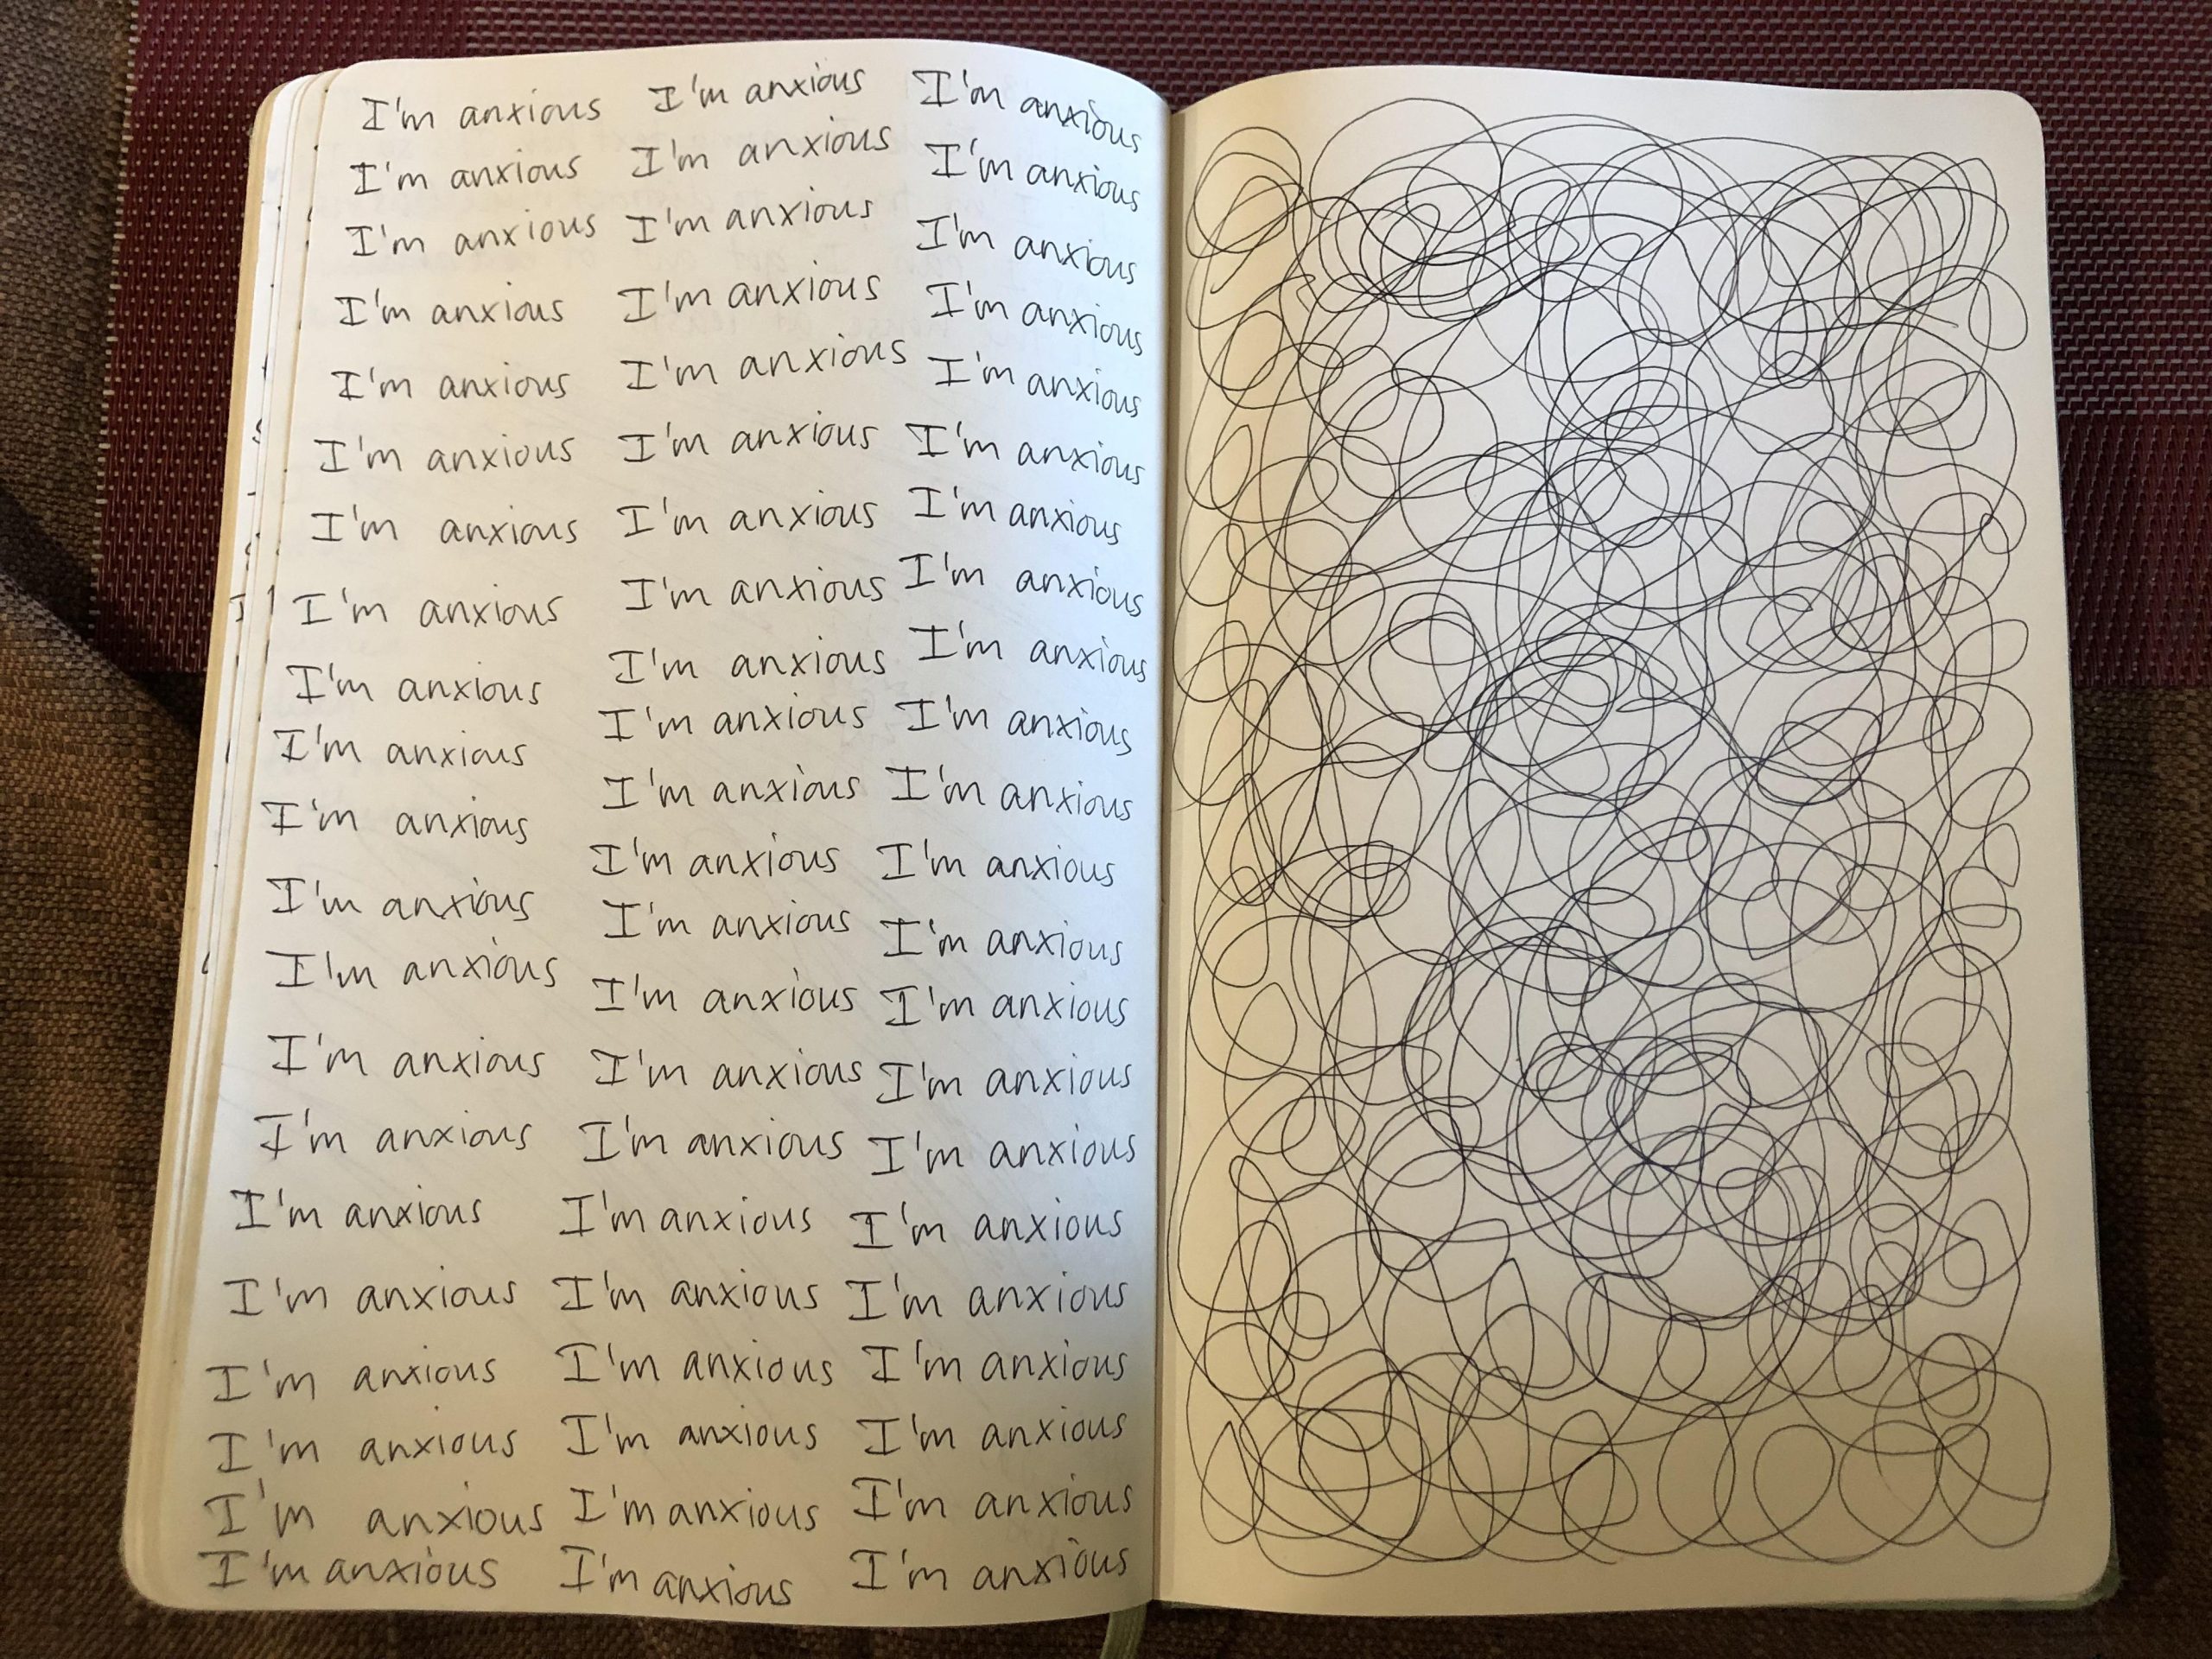 I'm anxious I'm anxious I'm anxious
I'm anxious I'm anxious I'm anxious
I'm anxious I'm anxious I'm anxious
I'm anxious I'm anxious I'm anxious
I'm anxious I'm anxious I'm anxious
I'm anxious I'm anxious I'm anxious
I'm anxious I'm anxious I'm anxious
I'm anxious I'm anxious I'm anxious
I'm anxious I'm anxious I'm anxious
I'm anxious I'm anxious I'm anxious
I'm anxious I'm anxious I'm anxious
I'm anxious I'm anxious
I'm anxious I'm anxious I'm anxious
I'm anxious I'm anxious I'm anxious
I'm anxious I'm anxious I'm anxious
I'm anxious I'm anxious I'm anxious
I'm anxious I'm anxious I'm anxious
I'm anxious I'm anxious I'm anxious
I'm anxious I'm anxious I'm anxious
I'm anxious I'm anxious I'm anxious
I'm anxious I'm anxious I'm anxious
I'm anxious I'm anxious I'm anxious